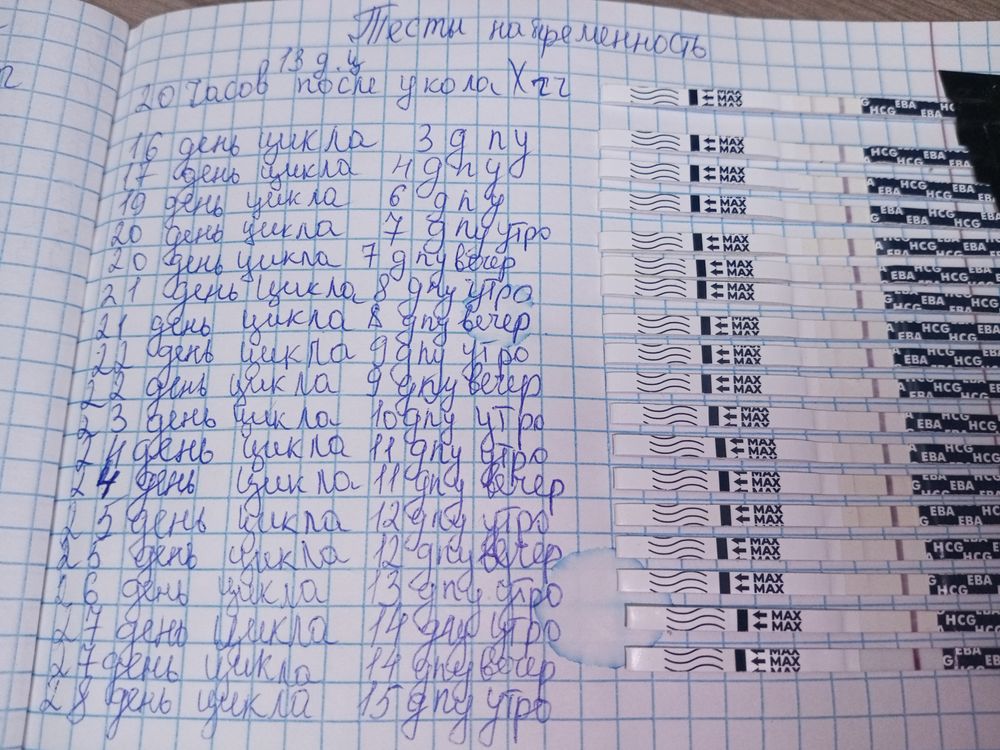 Тесты на беременность
13 д.ц
20 часов после укола Хгч
16 день цикла 3 дпу
17 день цикла 4 дпу
19 день цикла 6 дпу
20 день цикла 7 дпу утро
20 день цикла 7 дпу вечер
21 день цикла 8 дпу утро
21 день цикла 8 дпу вечер
22 день цикла 9 дпу утро
22 день цикла 9 дпу вечер
23 день цикла 10 дпу утро
24 день цикла 11 дпу утро
24 день цикла 11 дпу вечер
25 день цикла 12 дпу утро
25 день цикла 12 дпу вечер
26 день цикла 13 дпу утро
27 день цикла 14 дпу утро
27 день цикла 14 дпу вечер
28 день цикла 15 дпу утро
MAX
MAX
HCG EBA
MAX
MAX
HCG EBA
MAX
MAX
HCG EBA
MAX
MAX
HCG EBA
MAX
MAX
HCG EBA
MAX
MAX
HCG EBA
MAX
MAX
HCG EBA
MAX
MAX
HCG EBA
MAX
MAX
HCG EBA
MAX
MAX
HCG EBA
MAX
MAX
HCG EBA
MAX
MAX
HCG EBA
MAX
MAX
HCG EBA
MAX
MAX
EBA HCG
MAX
MAX
HCG EBA
MAX
MAX
HCG EBA
MAX
MAX
HCG EBA
MAX
MAX
EBA HCG